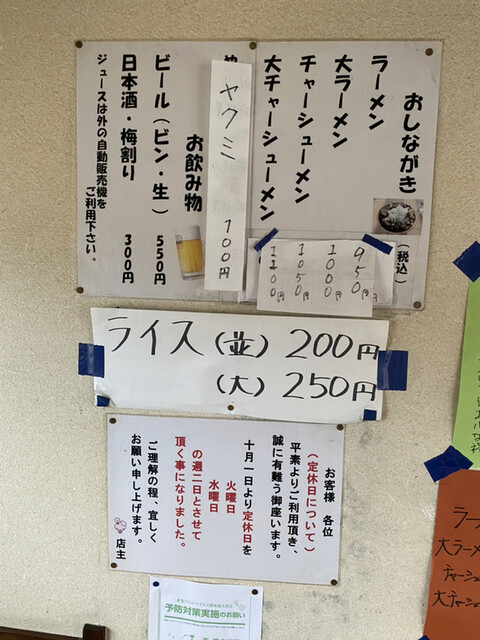 おしながき
(税込)
ラーメン
大ラーメン
チャーシューメン
大チャーシューメン
950円
1000円
1050円
1100円
ヤクミ 100円
お飲み物
ビール(ビン・生) 550円
日本酒・梅割り 300円
ジュースは外の自動販売機を
ご利用下さい。
ライス(並) 200円
(大) 250円
お客様 各位
(定休日について)
平素よりご利用頂き、
誠に有難う御座います。
十月一日より定休日を
火曜日
水曜日
の週二日とさせて
頂く事になりました。
ご理解の程、宜しく
お願い申し上げます。
店主
予防対策実施のお願い
ラー
大ラーメ
チャーシュ
大チャー